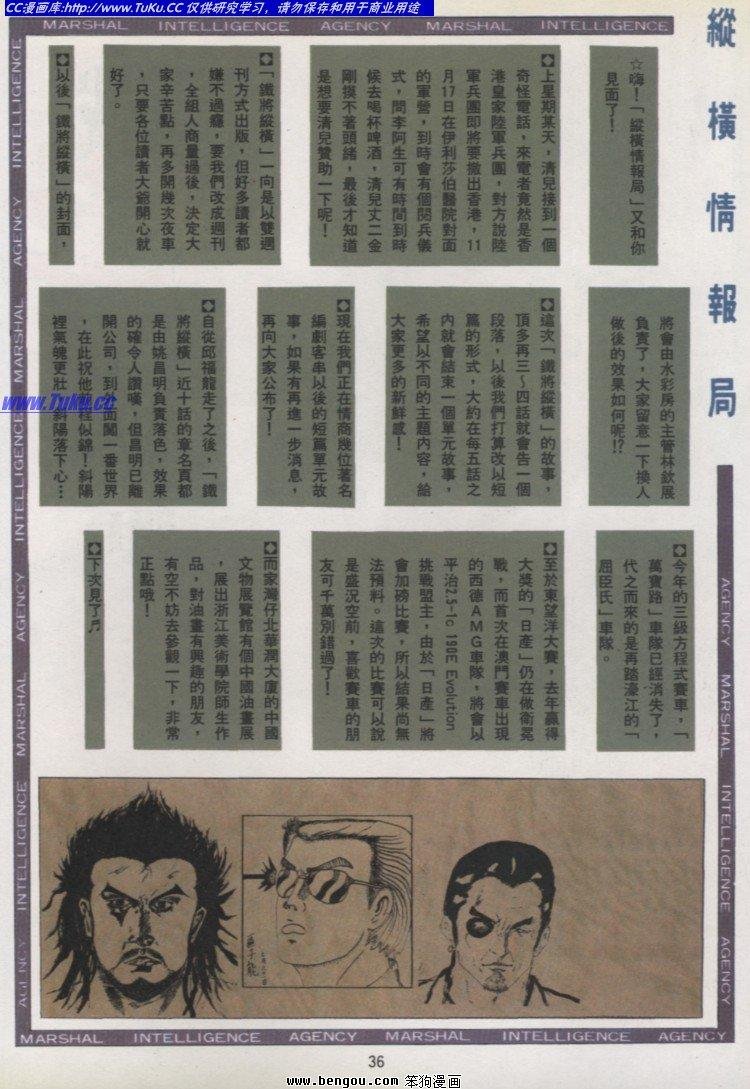 CC漫画库:http://www.TuKu.CC 仅供研究学习，请勿保存和用于商业用途
MARSHAL INTELLIGENCE AGENCY INTELLIGENCE
縱橫情報局
☆嗨！「縱橫情報局」又和你
見面了！
◆上星期某天，清兒接到一個
奇怪電話，來電者竟然是香
港皇家陸軍兵團，對方說陸
軍兵團即將要撤出香港，11
月17日在伊利莎伯醫院對面
的軍營，到時會有個閱兵儀
式，問李阿生可有時間到時
候去喝杯啤酒，清兒丈二金
剛摸不著頭緒，最後才知道
是想要清兒贊助一下呢！
◆「鐵將縱橫」一向是以雙週
刊方式出版，但好多讀者都
嫌不過癮，要我們改成週刊
，全組人商量過後，決定大
家辛苦點，再多開幾次夜車
，只要各位讀者大爺開心就
好了。
◆以後「鐵將縱橫」的封面，
將會由水彩房的主管林欽展
負責了，大家留意一下換人
做後的效果如何呢!?
◆這次「鐵將縱橫」的故事，
頂多再三～四話就會告一個
段落，以後我們打算改以短
篇的形式，大約在每五話之
內就會結束一個單元故事，
希望以不同的主題內容，給
大家更多的新鮮感！
◆現在我們正在情商幾位著名
編劇客串以後的短篇單元故
事，如果有再進一步消息，
再向大家公布了！
◆自從邱福龍走了之後，「鐵
將縱橫」近十話的章名頁都
是由姚昌明負責落色，效果
的確令人讚嘆，但昌明已離
開公司，到外面闖一番世界
，在此祝他前程似錦！斜陽
裡氣魄更壯，斜陽落下心…
www.Tuku.cc
◆今年的三級方程式賽車，「
萬寶路」車隊已經消失了，
代之而來的是再踏濠江的「
屈臣氏」車隊。
◆至於東望洋大賽，去年贏得
大獎的「日產」仍在做衛冕
戰，而首次在澳門賽車出現
的西德AMG車隊，將會以
平治2.5-1c 190E Evolution
挑戰盟主，由於「日產」將
會加磅比賽，所以結果尚無
法預料。這次的比賽可以說
是盛況空前，喜歡賽車的朋
友可千萬別錯過了！
◆而家灣仔北華潤大廈的中國
文物展覽館有個中國油畫展
，展出浙江美術學院師生作
品，對油畫有興趣的朋友，
有空不妨去參觀一下，非常
正點哦！
◆下次見了♬
INTELLIGENCE AGENCY MARSHAL INTELLIGENCE AGENCY MARSHAL INTELLIGENCE AGENCY
AGENCY MARSHAL INTELLIGENCE AGENCY
MARSHAL INTELLIGENCE AGENCY MARSHAL INTELLIGENCE AGENCY
36
www.bengou.com 笨狗漫画